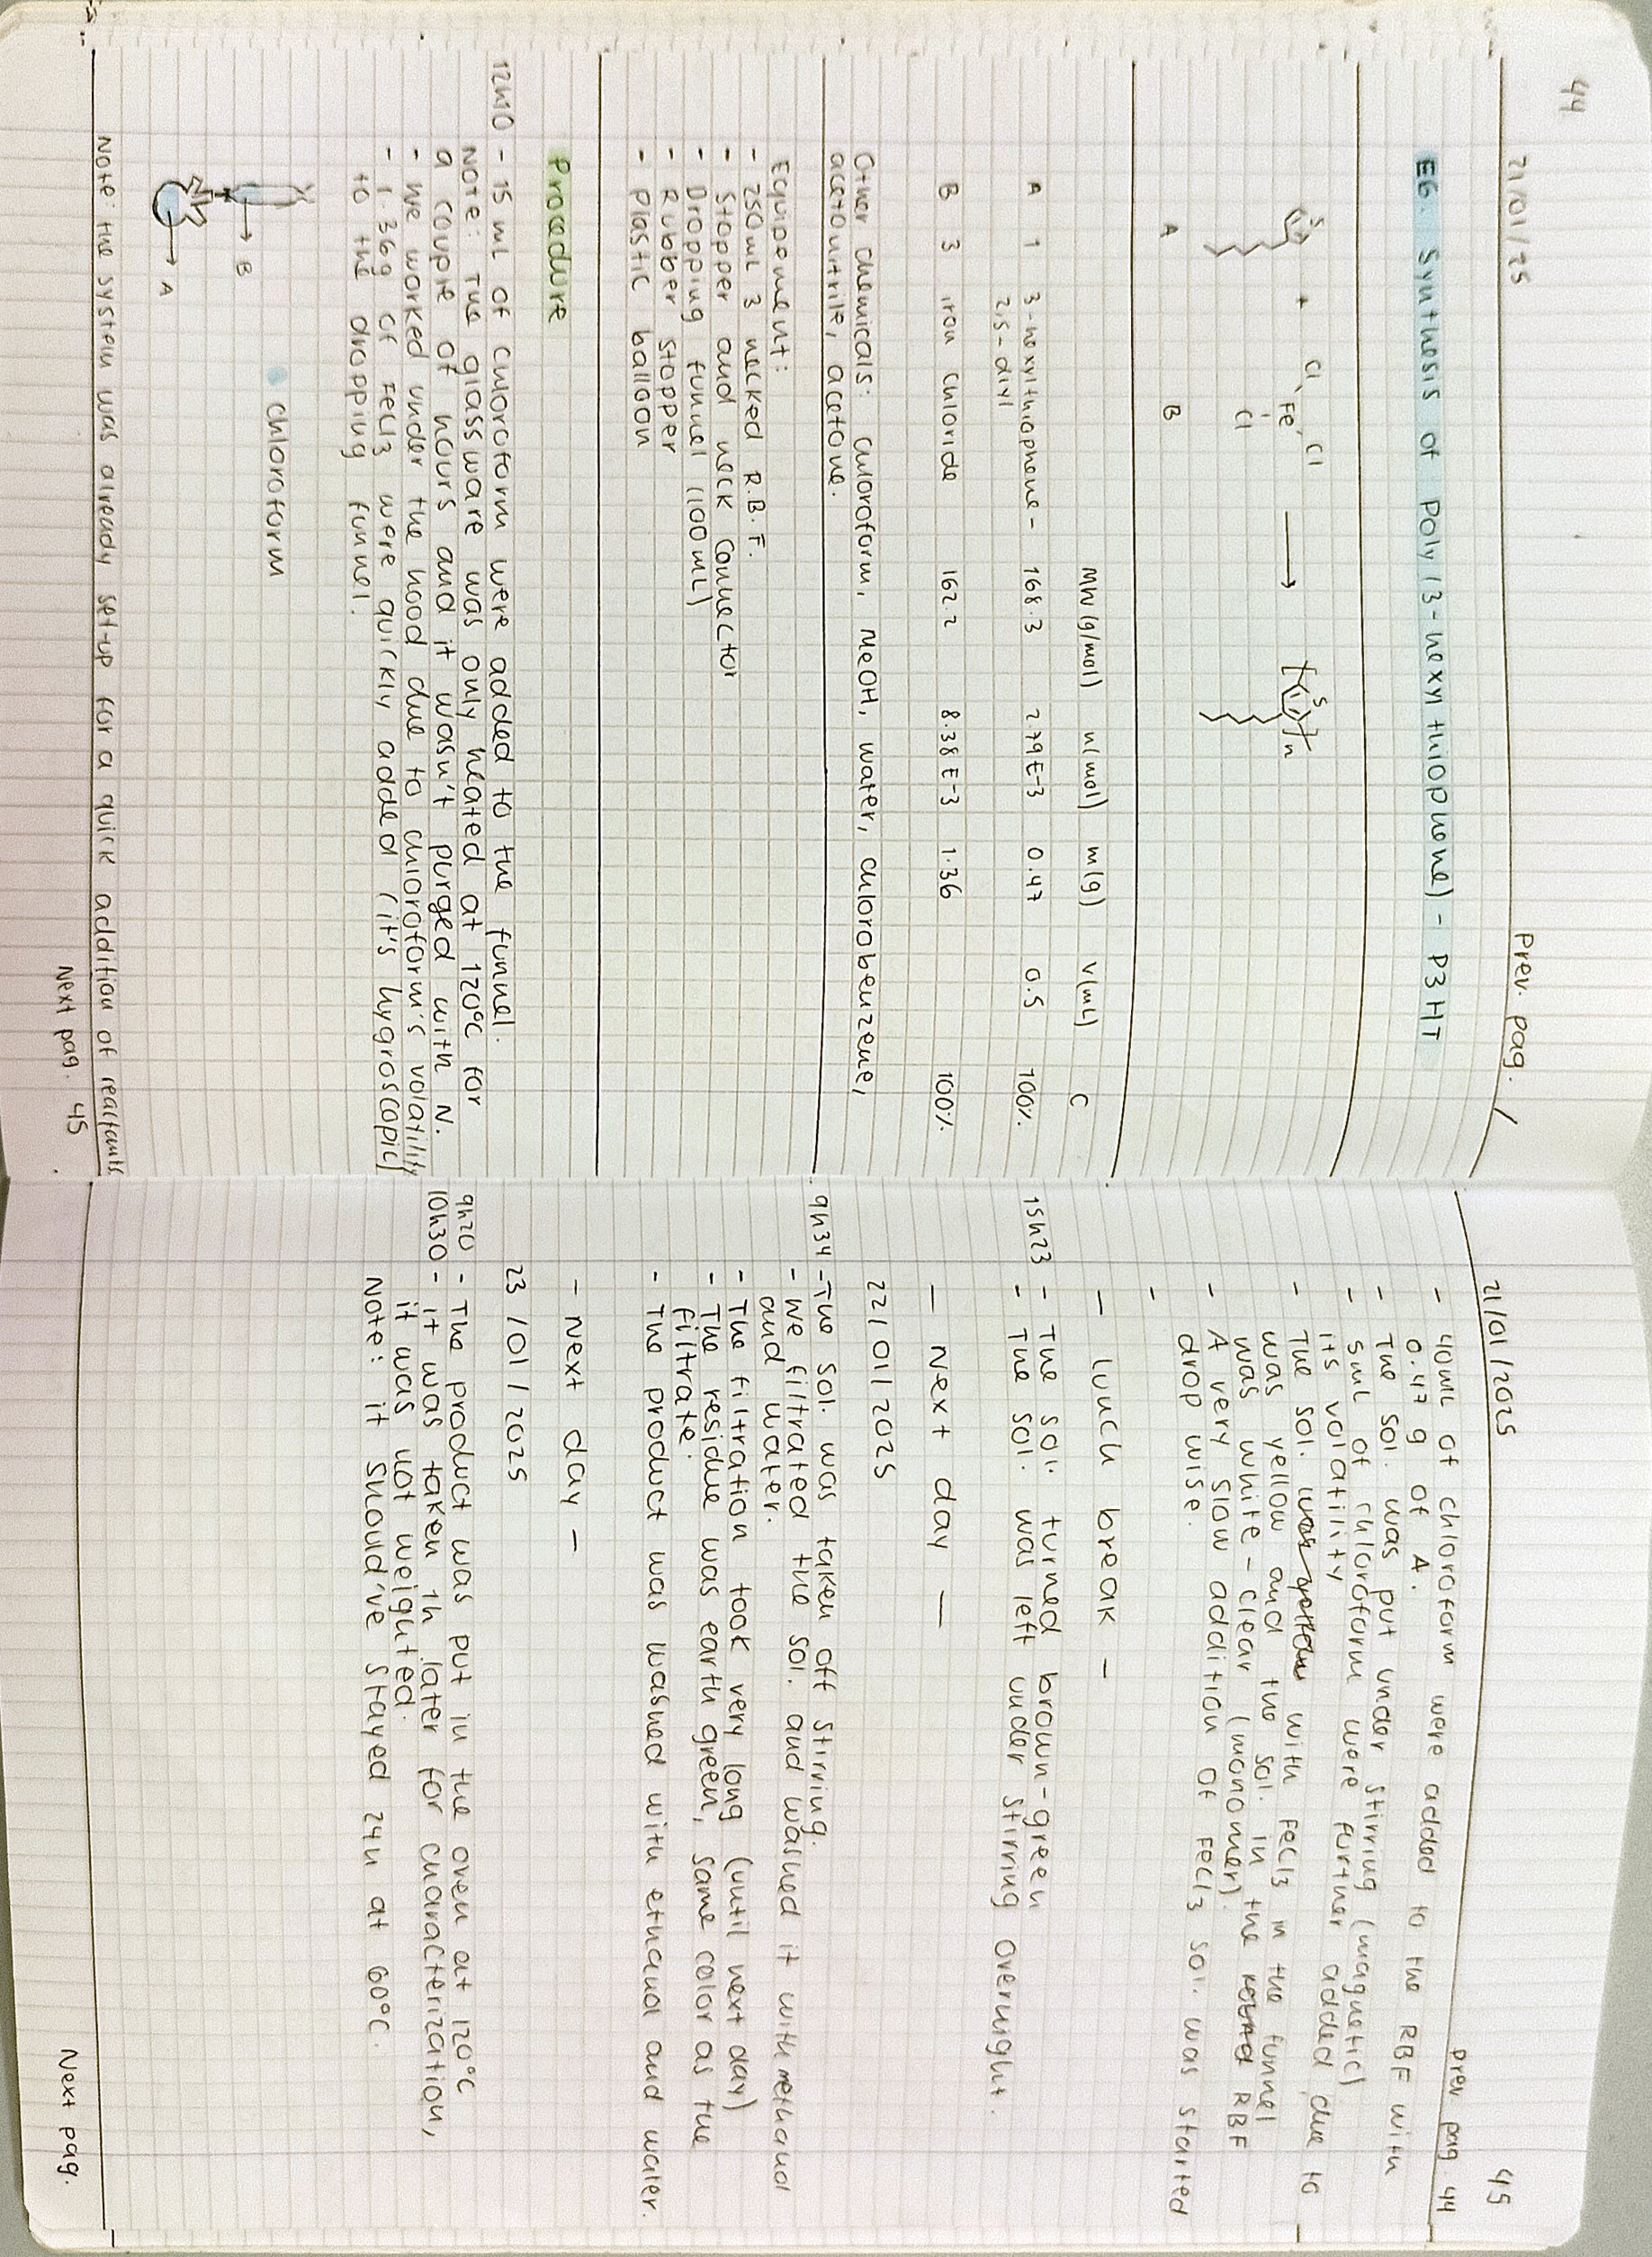 44
21/01/25
Prev. pag. /
E6. Synthesis of Poly(3-hexylthiophene) - P3HT
S
+
Cl
Fe
Cl
Cl
[ S ]n
A
B
MW(g/mol) n(mol) m(g) V(mL) C
A 1 3-hexylthiophene- 168.3 2.79E-3 0.47 0.5 100%
2,5-diyl
B 3 iron chloride 162.2 8.38E-3 1.36 100%
Other chemicals: chloroform, MeOH, water, chlorobenzene,
acetonitrile, acetone.
Equipement:
- 250mL 3 necked R.B.F.
- Stopper and neck connector
- Dropping funnel (100mL)
- Rubber stopper
- Plastic balloon
Procedure
12h10 - 15 mL of chloroform were added to the funnel.
Note: The glassware was only heated at 120°C for
a couple of hours and it wasn't purged with N.
- We worked under the hood due to chloroform's volatility
- 1.36g of FeCl3 were quickly added (it's hygroscopic)
to the dropping funnel.
Chloroform
B
A
Note: the system was already set-up for a quick addition of reactants
Next pag. 45
45
21/01/2025
prev pag. 44
- 40mL of chloroform were added to the RBF with
0.47 g of A.
- The sol. was put under stirring (magnetic)
- 5mL of chloroform were further added due to
its volatility
- The sol. with FeCl3 in the funnel
was yellow and the sol. in the RBF
was white-clear (monomer).
- A very slow addition of FeCl3 sol. was started
drop wise.
-
— lunch break —
15h23 - The sol. turned brown-green
- The sol. was left under stirring overnight.
— Next day —
22/01/2025
9h34 - The sol. was taken off stirring.
- We filtrated the sol. and washed it with methanol
and water.
- The filtration took very long (until next day)
- The residue was earth green, same color as the
filtrate.
- The product was washed with ethanol and water.
- Next day -
23/01/2025
9h20 - The product was put in the oven at 120°C
10h30 - it was taken 1h later for characterization,
it was not weighted.
Note: it should've stayed 24h at 60°C.
Next pag.